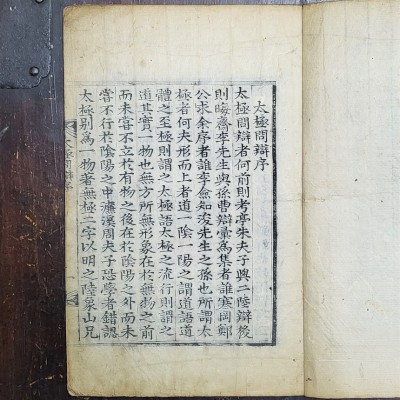 太極問辯序
太極問辯者何前則考亭朱夫子與二陸辯後
則晦齋李先生與孫曹辯彙爲集者誰寒岡鄭
公求余序者誰李僉知浚先生之孫也所謂太
極者何夫形而上者道一陰一陽之謂道語道
體之至極則謂之太極語太極之流行則謂之
道其實一物也無方所無形象在於無物之前
而未嘗不立於有物之後在於陰陽之外而未
嘗不行於陰陽之中濂溪周夫子恐學者錯認
太極別爲一物著無極二字以明之陸象山兄
太極問辯序